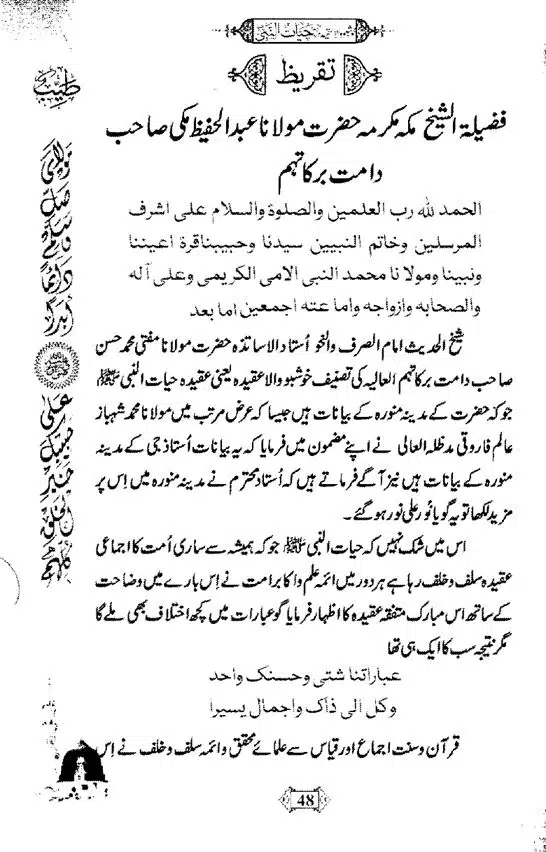 حیات النبی
تقریظ
فضیلۃ الشیخ مکہ مکرمہ حضرت مولانا عبدالحفیظ مکی صاحب
دامت برکاتہم
الحمد للہ رب العلمین والصلوۃ والسلام علی اشرف
المرسلین وخاتم النبیین سیدنا وحبیبناقرۃ اعیننا
ونبینا ومولانا محمد النبی الامی الکریمی وعلی آلہ
والصحابہ وازواجہ واما عتہ اجمعین اما بعد
شیخ الحدیث امام الصرف والنحو اُستاد الاساتذہ حضرت مولانا مفتی محمد حسن
صاحب دامت برکاتہم العالیہ کی تصنیف خوشبو والا عقیدہ یعنی عقیدہ حیات النبی ﷺ
جو کہ حضرت کے مدینہ منورہ کے بیانات ہیں جیسا کہ عرض مرتب میں مولانا محمد شہباز
عالم فاروقی مدظلہ العالی نے اپنے مضمون میں فرمایا کہ یہ بیانات اُستاذ جی کے مدینہ
منورہ کے بیانات ہیں نیز آگے فرماتے ہیں کہ اُستاد محترم نے مدینہ منورہ میں اِس پر
مزید لکھا تو یہ گویا نُور علی نور ہو گئے۔
اس میں شک نہیں کہ حیات النبی ﷺ جو کہ ہمیشہ سے ساری اُمت کا اجماعی
عقیدہ سلف و خلف رہا ہے ہر دور میں ائمہ علم و اکابر امت نے اِس بارے میں وضاحت
کے ساتھ اس مبارک متفقہ عقیدہ کا اظہار فرمایا گو عبارات میں کچھ اختلاف بھی ملے گا
مگر نتیجہ سب کا ایک ہی تھا
عباراتنا شتی وحسنک واحد
وکل الی ذاک واجمال یسیرا
قرآن وسنت اجماع اور قیاس سے علمائے محقق وائمہ سلف وخلف نے اِس
48
مولای صل وسلم دائما ابدا
علی حبیبک خیر الخلق کلهم